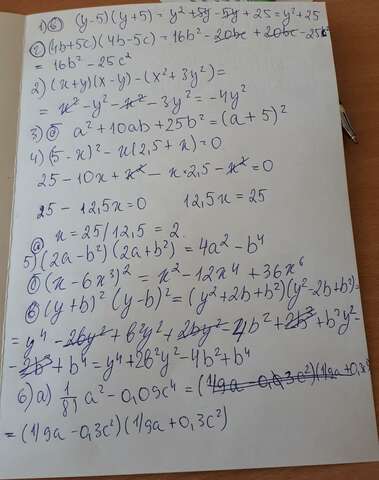 1) б (y-5)(y+5) = y² + 5y - 5y + 25 = y² + 25
г (4b+5c)(4b-5c) = 16b² - 20bc + 20bc - 25c²
= 16b² - 25c²
2) (x+y)(x-y) - (x²+3y²) =
= x² - y² - x² - 3y² = -4y²
3) б a² + 10ab + 25b² = (a+5)²
4) (5-x)² - x(2,5+x) = 0
25 - 10x + x² - x·2,5 - x² = 0
25 - 12,5x = 0 12,5x = 25
x = 25/12,5 = 2.
5) а (2a-b²)(2a+b²) = 4a² - b⁴
б (x-6x³)² = x² - 12x⁴ + 36x⁶
в (y+b)² (y-b)² = (y²+2b+b²)(y²-2b+b²) =
= y⁴ - 2by² + b²y² + 2by² - 4b² + 2b³ + b²y² -
- 2b³ + b⁴ = y⁴ + 2b²y² - 4b² + b⁴
6) а) 1/81 a² - 0,09c⁴ = (1/9a - 0,03c²)(1/9a + 0,3c²)
= (1/9a - 0,3c²)(1/9a + 0,3c²)